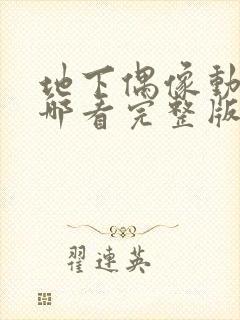 地下偶像動
哪看完整版
翟連英